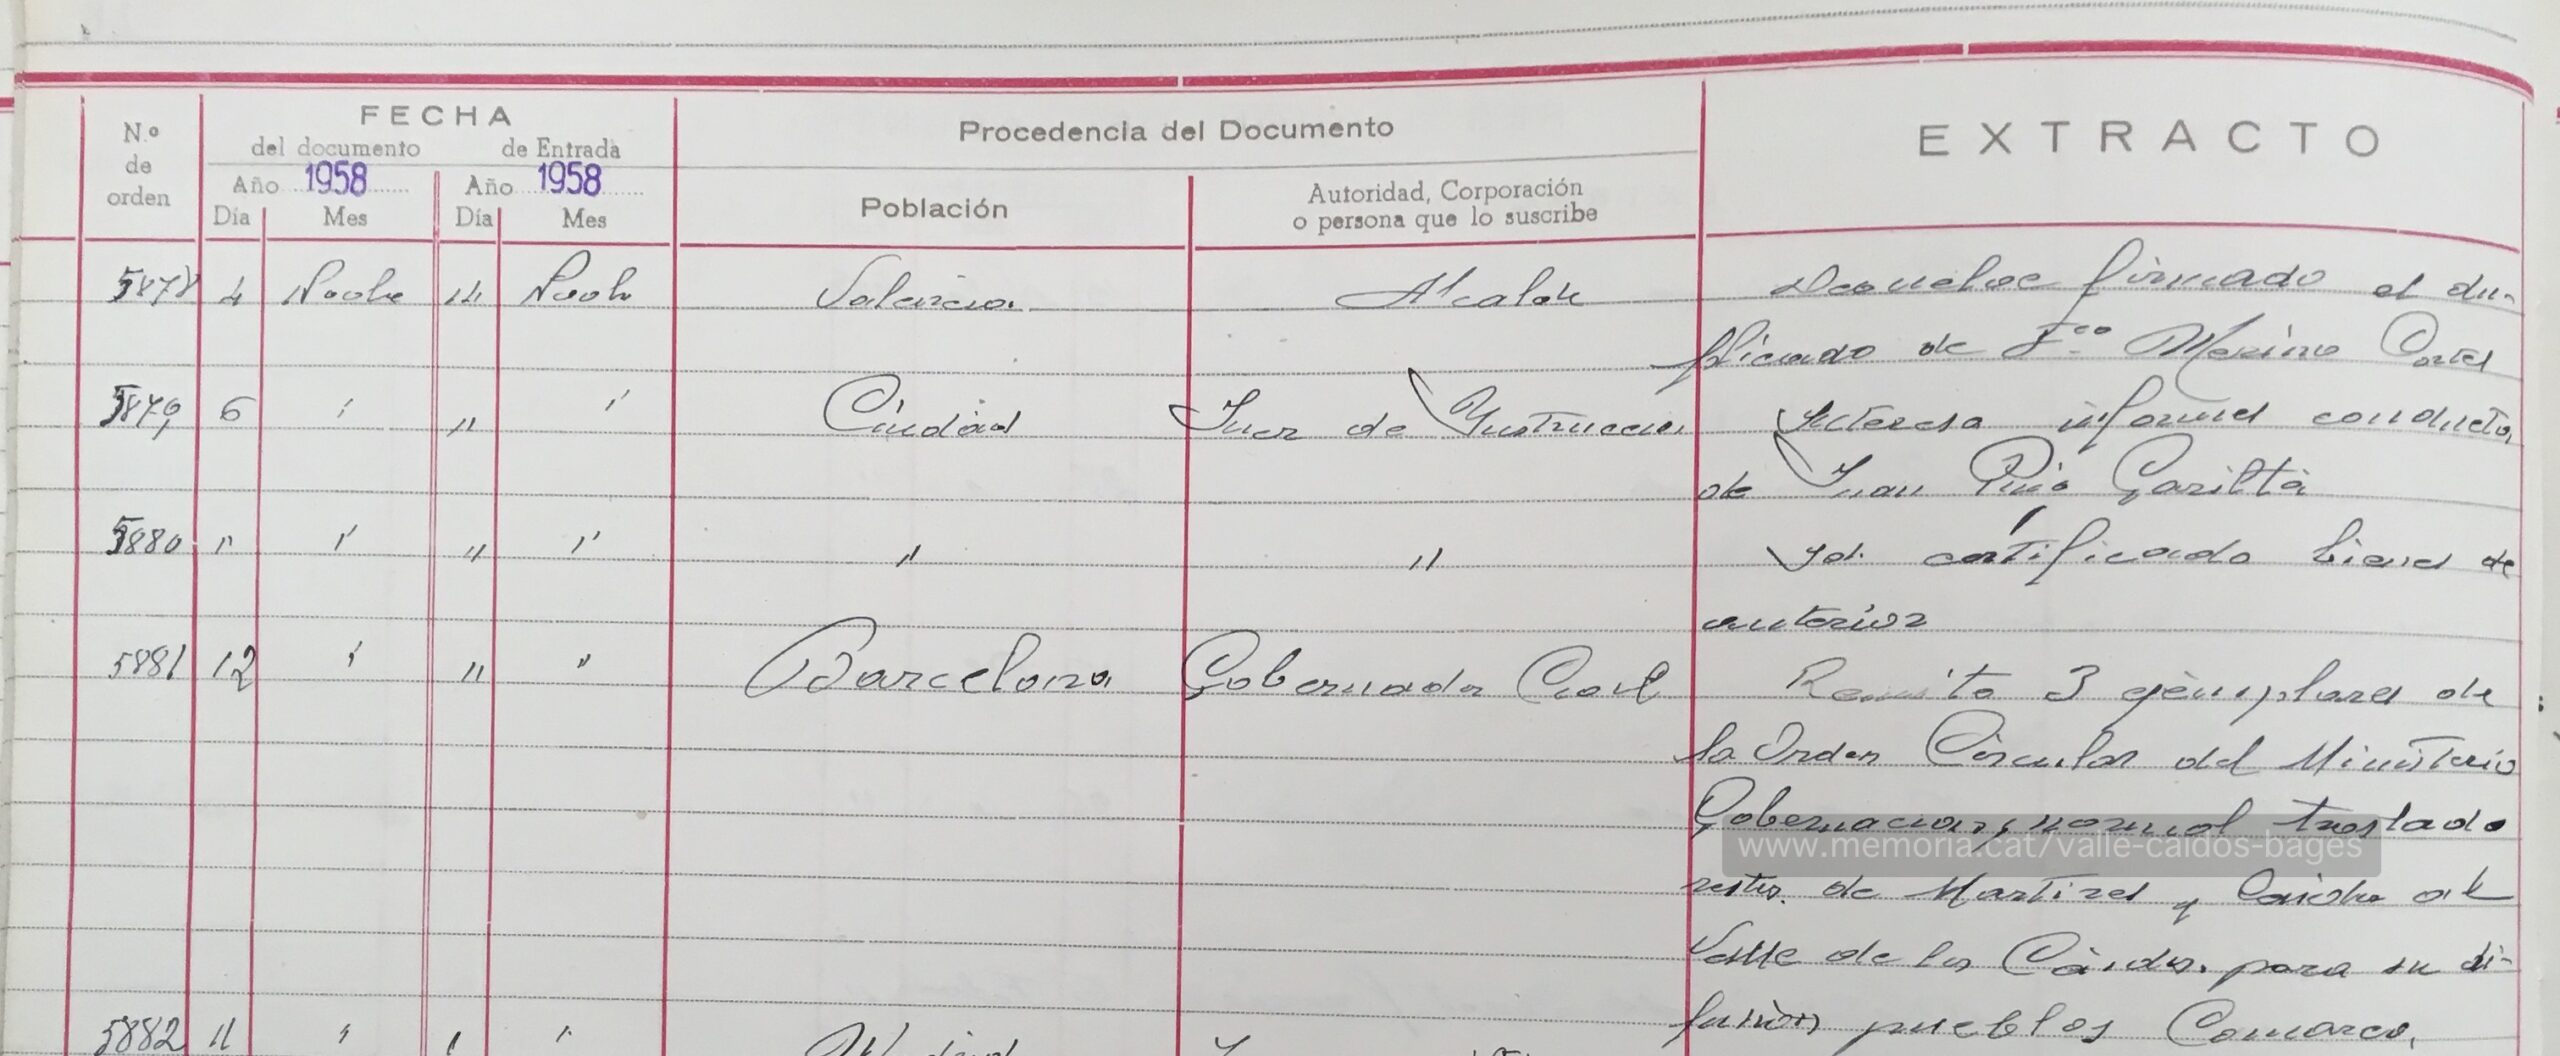 N.º de orden
FECHA
del documento
de Entrada
Año 1958
Año 1958
Día Mes
Día Mes
Procedencia del Documento
Población
Autoridad, Corporación
o persona que lo suscribe
EXTRACTO
5878 4 Nvbre 14 Nvbr Valencia Alcalde Devuelve firmado el du-
plicado de Fco Merino
5879 6 " " " Ciudad Juez de Instruccion Interesa informes conducta
de Juan Pino
5880 " " " " " " Yd. certificado bienes de
anterior
5881 12 " " " Barcelona Gobernador Civil Remite 3 ejemplares de
la Orden Circular del Ministerio
Gobernacion, traslado
restos de Martires y Caidos al
Valle de los Caidos, para su di-
fusion pueblos Comarca.
5882 11 " " " Madrid
www.memoria.cat/valle-caidos-bages